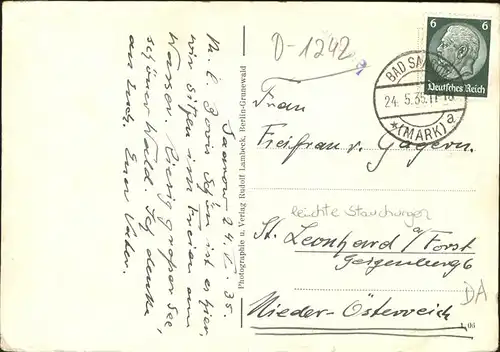 Saarow 24. V. 35.
M. l. Doris Schön ist es hier,
wir sitzen im Freien am
Wasser. Riesig großer See,
schöner Wald. Ich denke
an Euch. Euer Vater.
Photographie u. Verlag Rudolf Lambeck, Berlin-Grunewald
D-1242
6 6
Deutsches Reich
BAD SAAROW
24.5.35.
*(MARK) a
Frau
Freifrau v. Gagern.
leichte Stauchungen
St. Leonhard a/Forst
Geigenberg 6
DA
Nieder-Österreich